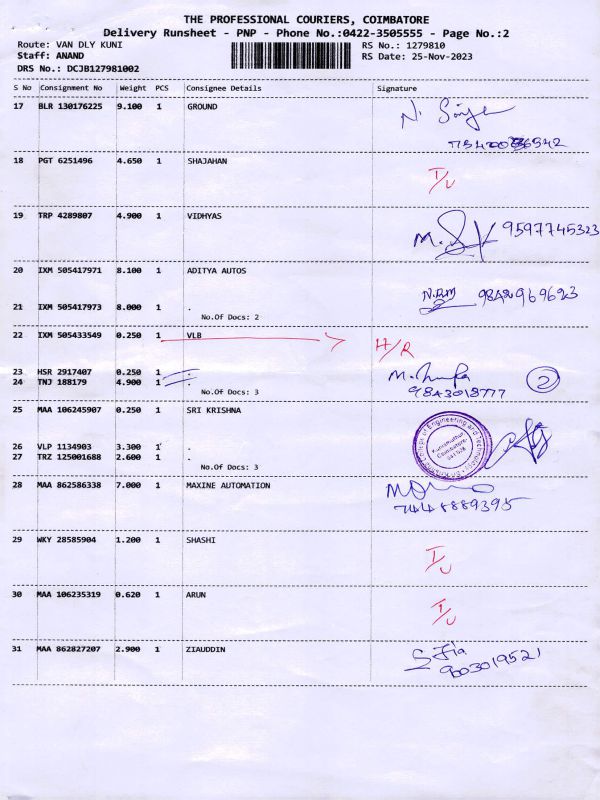 THE PROFESSIONAL COURIERS, COIMBATORE
Delivery Runsheet - PNP - Phone No.:0422-3505555 - Page No.:2
Route: VAN DLY KUNI RS No.: 1279810
Staff: ANAND RS Date: 25-Nov-2023
DRS No.: DCJB127981002
S No Consignment No Weight PCS Consignee Details Signature
17 BLR 130176225 9.100 1 GROUND
18 PGT 6251496 4.650 1 SHAJAHAN I/U
19 TRP 4289807 4.900 1 VIDHYAS 9597745323
20 IXM 505417971 8.100 1 ADITYA AUTOS
21 IXM 505417973 8.000 1 .
No.Of Docs: 2
22 IXM 505433549 0.250 1 VLB H/R
23 HSR 2917407 0.250 1 .
24 TNJ 188179 4.900 1 . 9843018777 2
No.Of Docs: 3
25 MAA 106245907 0.250 1 SRI KRISHNA
26 VLP 1134903 3.300 1 .
27 TRZ 125001688 2.600 1 .
No.Of Docs: 3
28 MAA 862586338 7.000 1 MAXINE AUTOMATION
7448889395
29 WKY 28585904 1.200 1 SHASHI I/U
30 MAA 106235319 0.620 1 ARUN I/U
31 MAA 862827207 2.900 1 ZIAUDDIN
9003019521